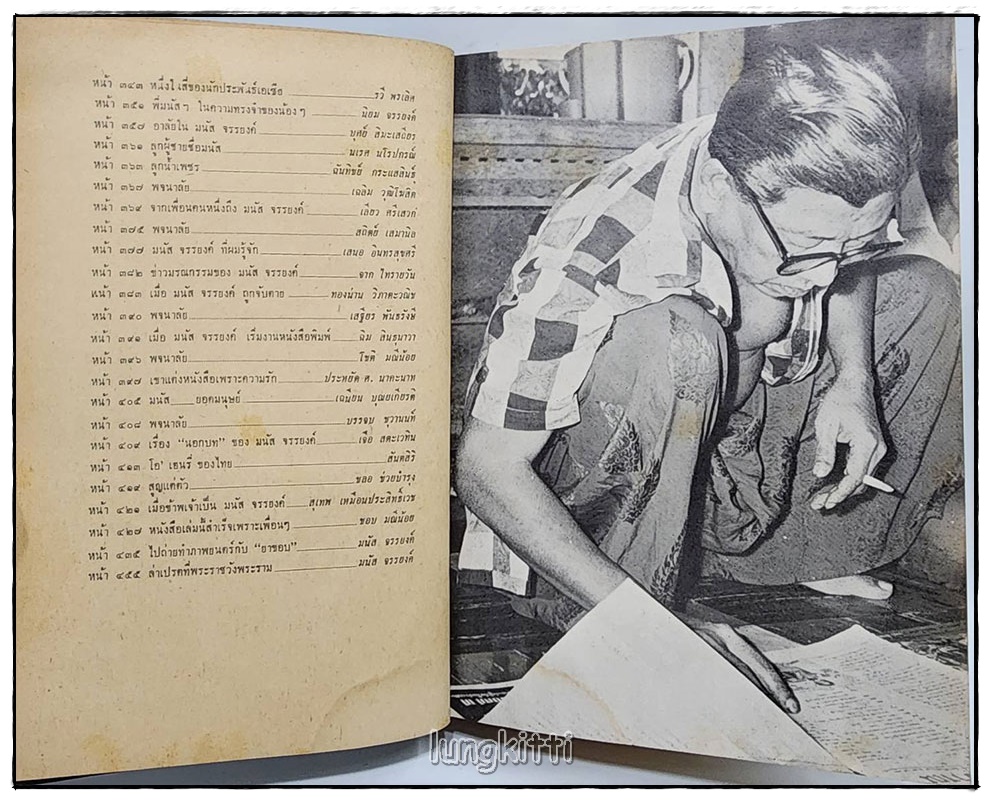 หน้า ๓๔๓ หนึ่งในสี่ของนักประพันธ์เอเซีย รวี พรเลิศ
หน้า ๓๕๑ พี่มนัสๆ ในความทรงจำของน้องๆ นิยม จรรยงค์
หน้า ๓๕๗ อาลัยใน มนัส จรรยงค์ บุศย์ สิมะเสถียร
หน้า ๓๖๑ ลูกผู้ชายชื่อมนัส นเรศ นโรปกรณ์
หน้า ๓๖๓ ลูกน้ำเพชร ฉันทิชย์ กระแสสินธุ์
หน้า ๓๖๗ พจนาลัย เฉลิม วุฒิโฆสิต
หน้า ๓๖๙ จากเพื่อนคนหนึ่งถึง มนัส จรรยงค์ เลียว ศรีเสวก
หน้า ๓๗๕ พจนาลัย สถิตย์ เสมานิล
หน้า ๓๗๗ มนัส จรรยงค์ ที่ผมรู้จัก เสนอ อินทรสุขศรี
หน้า ๓๘๒ ข่าวมรณกรรมของ มนัส จรรยงค์ จาก ไทรายวัน
หน้า ๓๘๓ เมื่อ มนัส จรรยงค์ ถูกจับตาย ทองน่าน วิภาตะวณิช
หน้า ๓๙๐ พจนาลัย เสฐียร พันธรังษี
หน้า ๓๙๑ เมื่อ มนัส จรรยงค์ เริ่มงานหนังสือพิมพ์ ฉิม สินธุนาวา
หน้า ๓๙๖ พจนาลัย โชติ มณีน้อย
หน้า ๓๙๗ เขาแต่งหนังสือเพราะความรัก ประหยัด ศ. นาคะนาท
หน้า ๔๐๕ มนัส ยอดมนุษย์ เฉนียน บุณยเกียรติ
หน้า ๔๐๘ พจนาลัย บรรจบ ชุวานนท์
หน้า ๔๐๙ เรื่อง “นอกบท” ของ มนัส จรรยงค์ เจือ สตะเวทิน
หน้า ๔๑๓ โอ' เฮนรี่ ของไทย สันตสิริ
หน้า ๔๑๙ สูญแต่ตัว ชลอ ช่วยบำรุง
หน้า ๔๒๑ เมื่อข้าพเจ้าเป็น มนัส จรรยงค์ สุเทพ เหมือนประสิทธิเวช
หน้า ๔๒๗ หนังสือเล่มนี้สำเร็จเพราะเพื่อนๆ ชอบ มณีน้อย
หน้า ๔๓๕ ไปถ่ายทำภาพยนตร์กับ “ยาขอบ” มนัส จรรยงค์
หน้า ๔๕๕ ล่าเปรตที่พระราชวังพระราม มนัส จรรยงค์
lungkitti